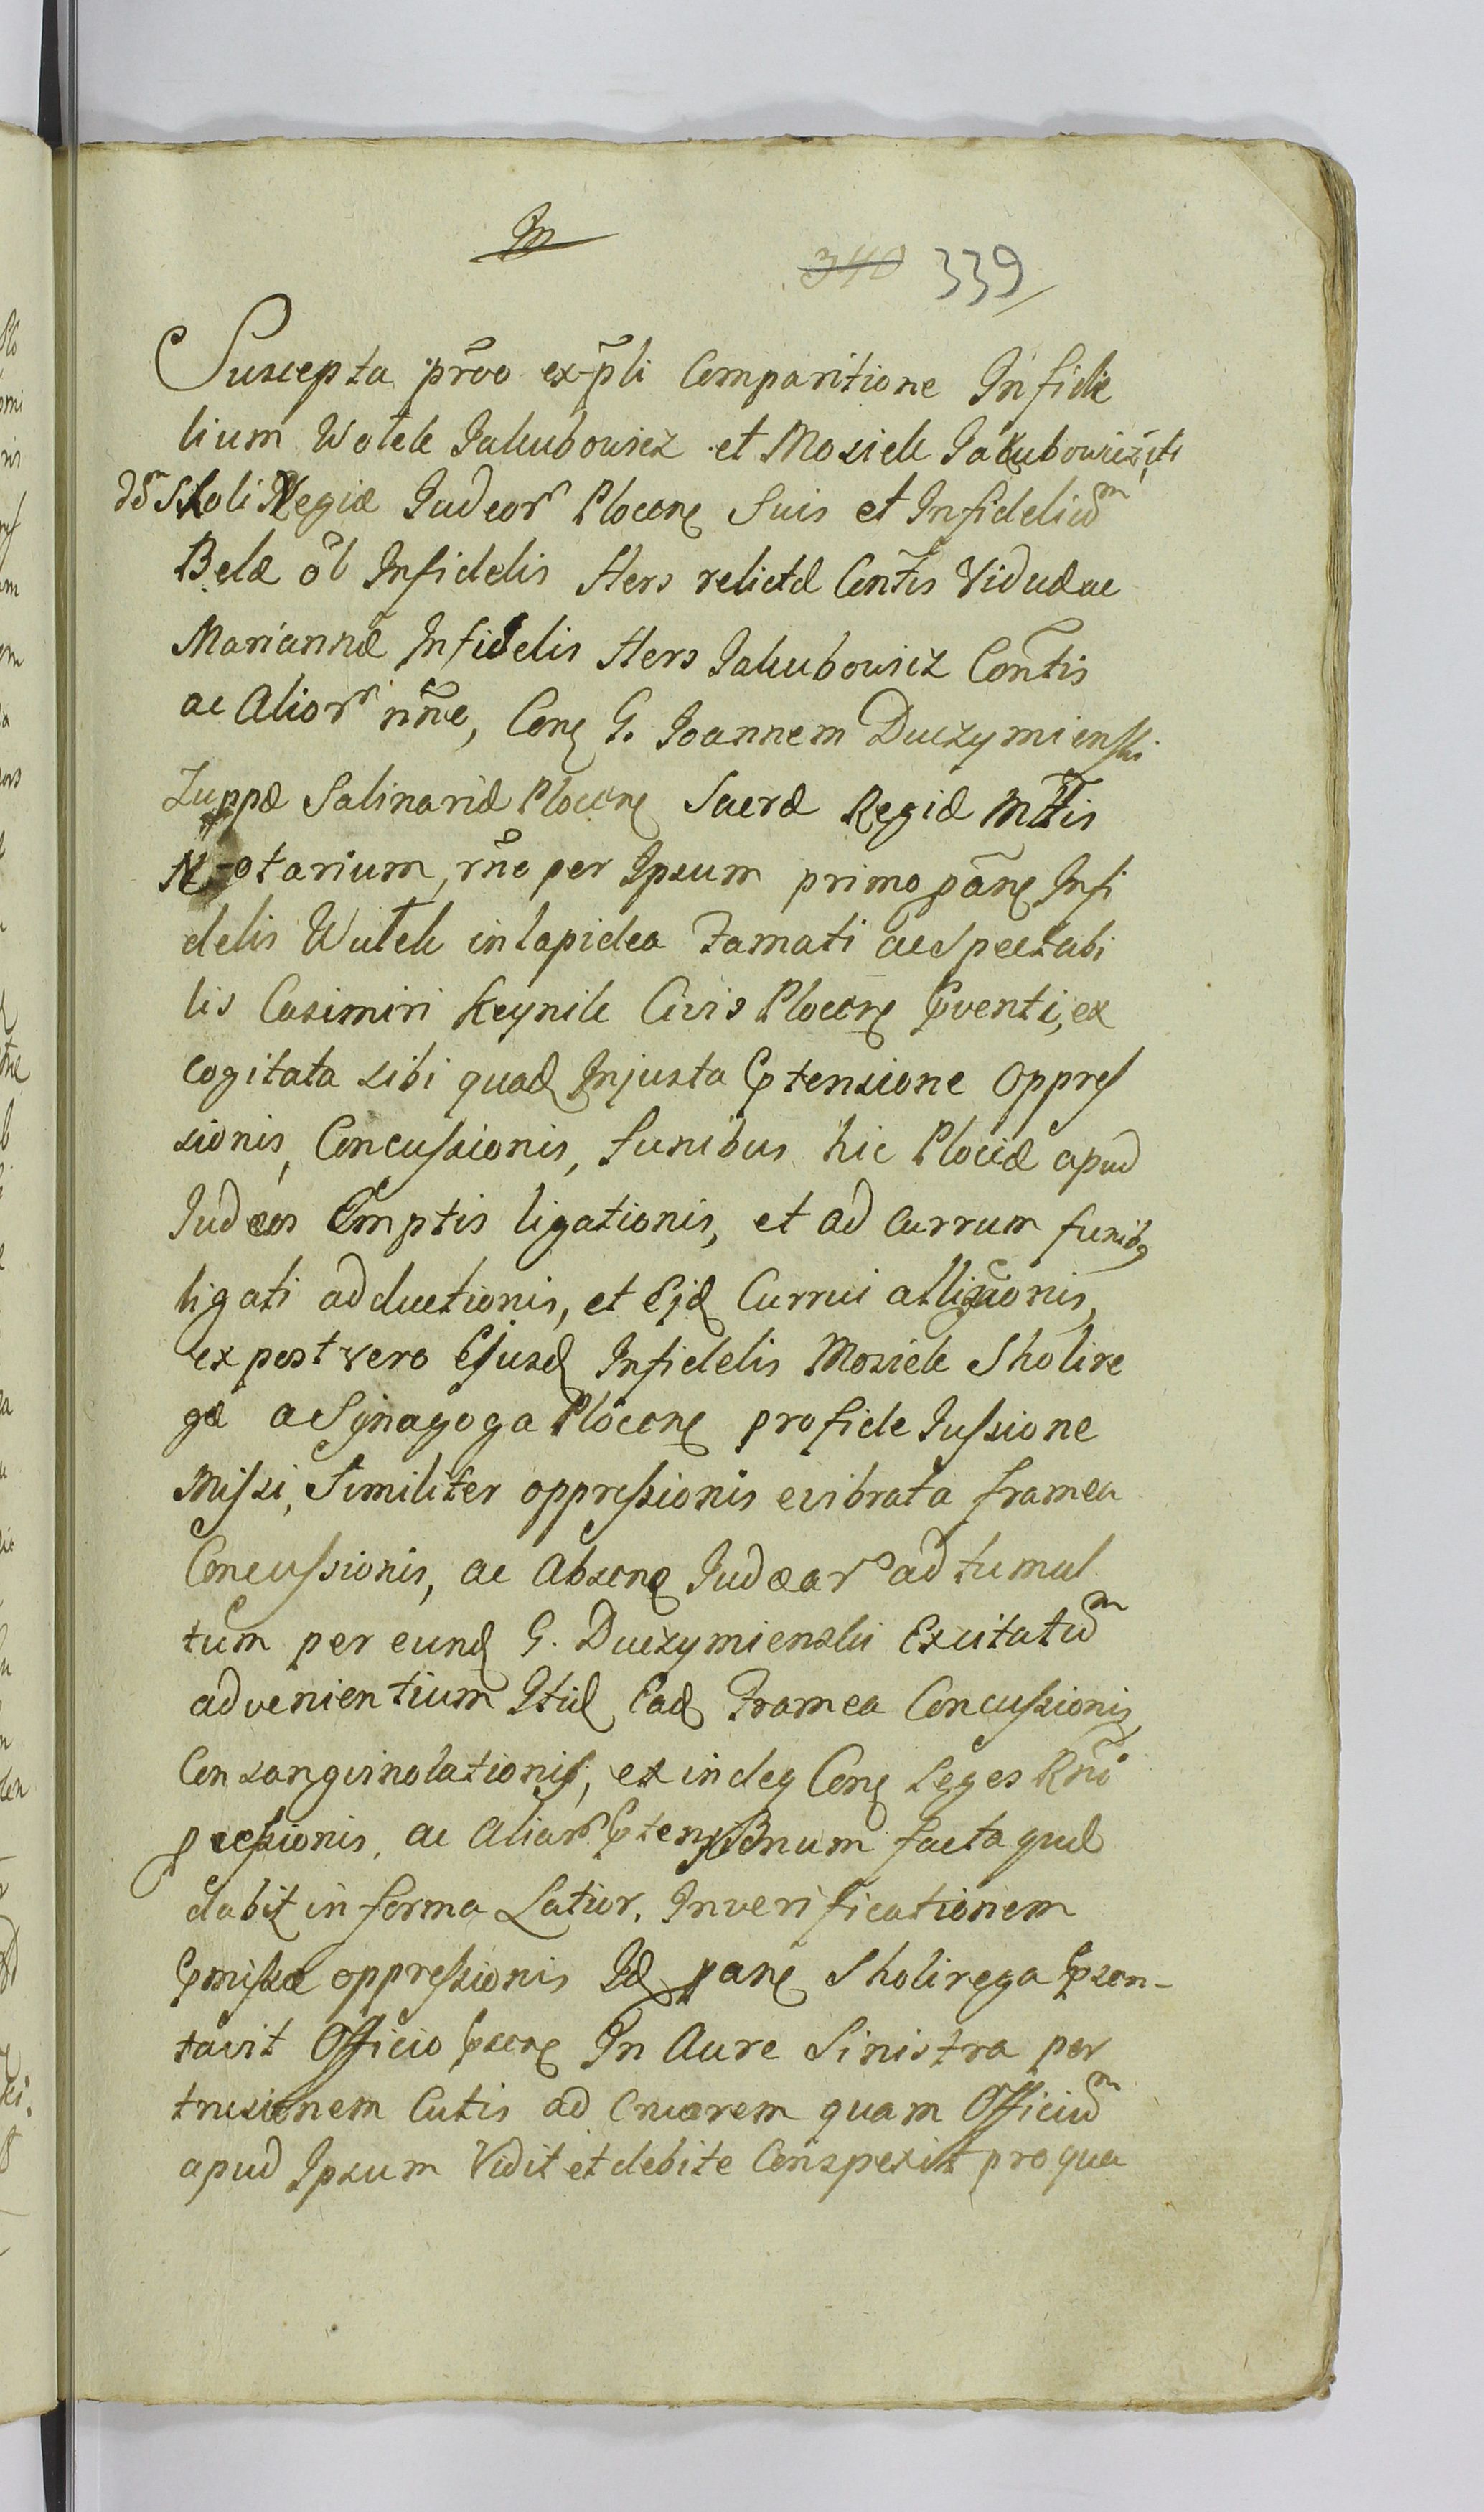 In
340 339
Suscepta pr̃vo ex-p̃li Comparitione Infide
lium Wotek Jakubowicz et Mosiek Jakubowicz iti
dẽ Skoli Regiæ Judeor̃ Plocen Suis et Infideliũ
Belæ õl Infidelis Hers relictæ Con̄tis Viduæ ac
Mariannæ Infidelis Hers Jakubowicz Con̄tis
ac Alior̃ nñe, Con G. Joannem Duczymienski
Zuppæ Salinariæ Plocen Sacræ Regiæ Mttis
N-otarium, rñe per Ipsum primo pãne Infi
delis Wutek in lapidea Famati ac Spectabi
lis Casimiri Keynik Civis Plocen pventi, ex
cogitata sibi quad Injusta ptensione oppres
sionis, Concussionis, funibus hic Plociæ apud
Judæos Emptis ligationis, et ad Currum funibq
ligati adductionis, et Ejd Currui alligãonis,
ex post vero Ejusd Infidelis Mosiek Skolire
gæ a Synagoga Plocen pro fide Jussione
Missi, Similiter oppressionis evibrata framea
Concussionis, ac Absone Judæor̃ ad tumul
tum per eund G. Duczymienski Excitatũ
advenientium Itid Ead Framea Concussionis,
Consangvinolationis, exindeq Con Leges Rñi
pcessionis, ac Aliar̃ ptensionum facta qud
dabit in forma Latior. In verificationem
pmissæ oppressionis Id pane Skolirega pson-
tavit Officio pscne In Aure Sinistra per
trusionem Cutis ad Cruorem quam Officiũ
apud Ipsum Vidit et debite Conspexit pro qua